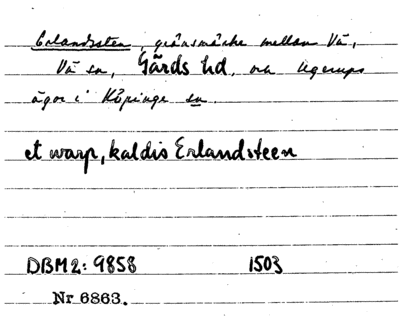 Erlandssten, gränsmärke mellan Vä,
Vä sn, Gärds hd, och Ugerups
ägor i Köpinge sn.
et warp, kaldis Erlandsteen
DBM2: 9858 1503
Nr 6863.